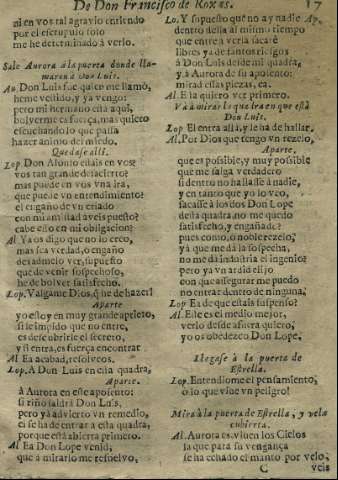 De Don Francisco de Roxas. 17
ni en vos tal agravio entiendo
por el escrupulo solo
me he determinado à verlo.
Sale Aurora à la puerta donde lla-
maron à Don Luis.
Au. Don Luis fue quien me llamò,
heme vestido, y ya vengo:
pero mi hermano està aqui,
bolverme es fuerça, mas quiero
escuchando lo que passa
hazer animo del miedo.
Quedase alli.
Lop. Don Alonso estais en vos?
vos tan grande desacierto?
mas puede en vos vna ira,
que puede vn entendimiento?
el engaño de vn criado
con mi amistad aveis puesto?
cabe esso en mi obligacion?
Al. Ya os digo que no lo creo,
mas sea verdad, o engaño
desadmelo ver, supuesto
que de venir sospechoso,
he de bolver satisfecho.
Lop. Valgame Dios, q̃ he de hazer!
Aparte
yo estoy en muy grande aprieto,
si le impido que no entre,
es descubrirle el secreto,
y si entra, es fuerça encontrar
Al. Ea acabad, resolveos.
Lop. A Don Luis en esta quadra,
Aparte.
à Aurora en este aposento:
si riño saldrà Don Luis,
pero ya advierto vn remedio,
el se ha de entrar a esta quadra,
porque està abierta primero.
Al. Ea Don Lope venid,
que à mirarlo me resuelvo,
Lo. Y supuesto què no ay nadie Ap.
dentro della al mismo tiempo
que entre à verla sacarè
libres ya de tantos riesgos
à Don Luis desde mi quadra,
y à Aurora de su aposento:
mirad essas piezas, ea.
Al. Ella quiero ver primero.
Va à mirar la quadra en que està
Don Luis.
Lop. El entra alli, y le ha de hallar.
Al. Por Dios que tengo vn rezelo,
Aparte,
que es possible, y muy possible
que me salga verdadero
si dentro no hallasse à nadie,
y en tanto que yo lo veo,
sacasse à los dos Don Lope
desta quadra, no me quedo
satisfecho, y engañado?
pues como, ò noble rezelo,
yà que me dà la sospecha,
no me dà industria el ingenio?
pero yà vn ardid elijo
con que assegurar me puedo
no entrar dentro de ninguna,
Lop Ea de que estais suspenso?
Al. Este es el medio mejor,
verlo desde afuera quiero,
yo os obedezco Don Lope.
Llegase à la puerta de
Estrella.
Lop. Entendiome el pensamiento,
o lo que vive vn peligro!
Mira à la puerta de Estrella, y vela
cubierta.
Al. Aurora es, viven los Cielos
la que para su vengança
se ha echado el manto por velo,
C veis